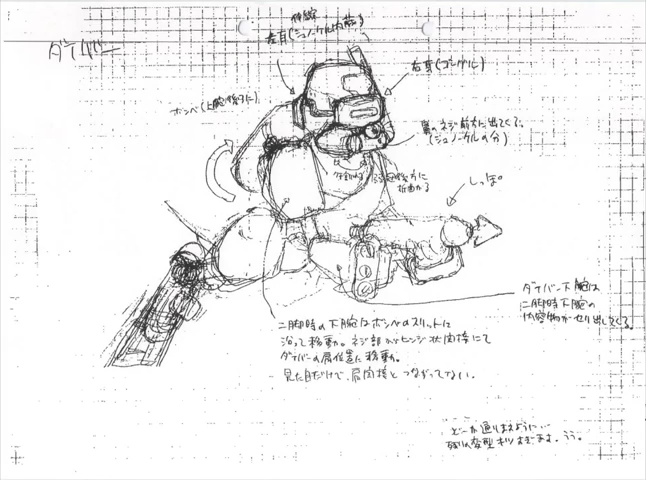 ダイバー
伸縮
左耳(シュノーケル内蔵)
右耳(ゴーグル)
ボンベ(上腕後ろに)
鼻のネジ前方に出てくる。
(シュノーケルの分)
後方に
折曲がる
しっぽ。
ダイバー下腕は
二脚時下腕の
内容物がせり出してくる。
二脚時の下腕はボンベのスリットに
沿って移動。ネジ部がヒンジ状関接にて
ダイバーの肩位置に移動。
見た目だけで、肩関接とつながってない。
どーか通りますように…
残りの変型キツすぎます。うう。